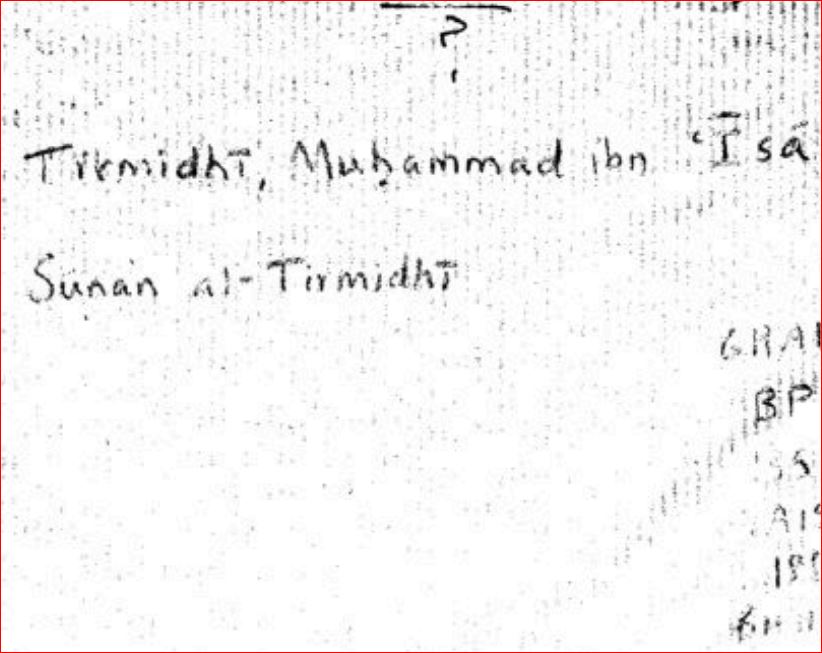 ?
Tirmidhī, Muḥammad ibn ʿĪsá
Sunan al-Tirmidhī
BP